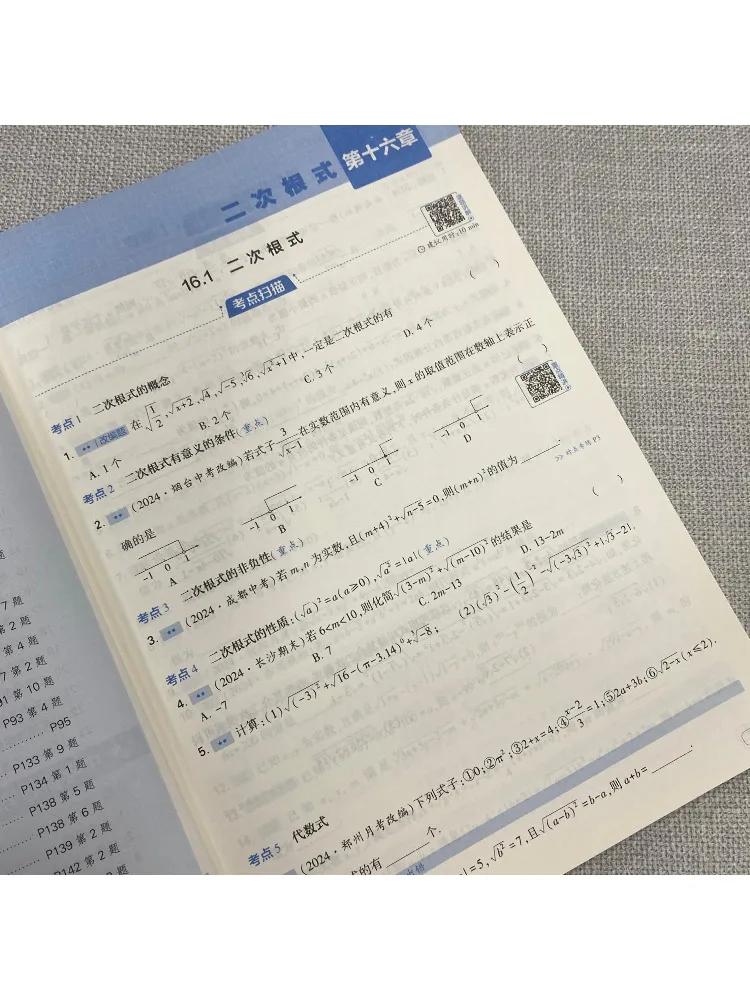 第十六章
二次根式
16.1 二次根式
建议用时:10 min
考点扫描
考点1 二次根式的概念
1. 改编题 在√(1/2),√(x+2),√4,√-5,∛6,√(x²+1)中,一定是二次根式的有 ( )
A. 1个 B. 2个 C. 3个 D. 4个
考点2 二次根式有意义的条件(重点)
2. (2024·烟台中考改编)若式子3/√(x-1)在实数范围内有意义,则x的取值范围在数轴上表示正
确的是 ( )
-1 0 1 -1 0 1 -1 0 1 -1 0 1
A B C D
考点3 二次根式的非负性(重点)
3. (2024·成都中考)若m,n为实数,且(m+4)²+√(n-5)=0,则(m+n)²的值为______.
考点4 二次根式的性质:(√a)²=a(a≥0),√a²=|a|(重点)
4. (2024·长沙期末)若6<m<10,则化简√(3-m)²+√(m-10)²的结果是 ( )
A. -7 B. 7 C. 2m-13 D. 13-2m
5. 计算:(1)√(-3)²+√16-(π-3.14)⁰+∛-8; (2)(√3)²-(1/2)⁻²-√(-3√3)²+|√3-2|.
考点5 代数式
(2024·郑州月考改编)下列式子:①0;②π²;③2+x=4;④(x-2)/3=1;⑤2a+3b;⑥√(2-x)(x≤2).
的有______个.
=5,√b²=7,且√(a-b)²=b-a,则a+b=______.
7题
第2题
第4题
第2题
第10题
P93 第4题
P95
P133 第9题
P134 第1题
P138 第5题
P138 第6题
P139 第2题
P142 第2题